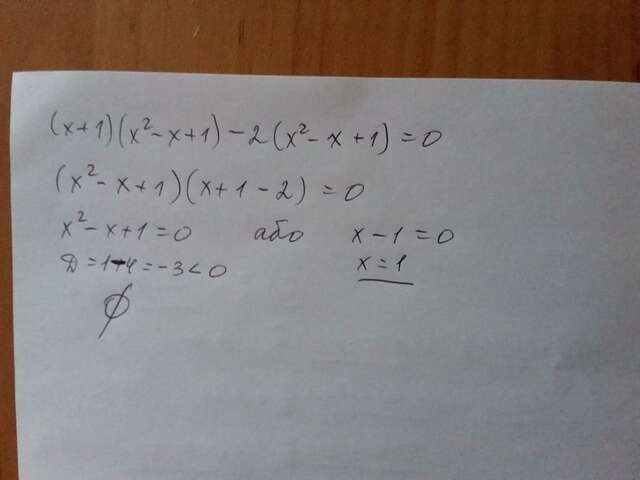 (x+1)(x²-x+1)-2(x²-x+1)=0
(x²-x+1)(x+1-2)=0
x²-x+1=0 або x-1=0
D=1-4=-3<0 x=1
∅